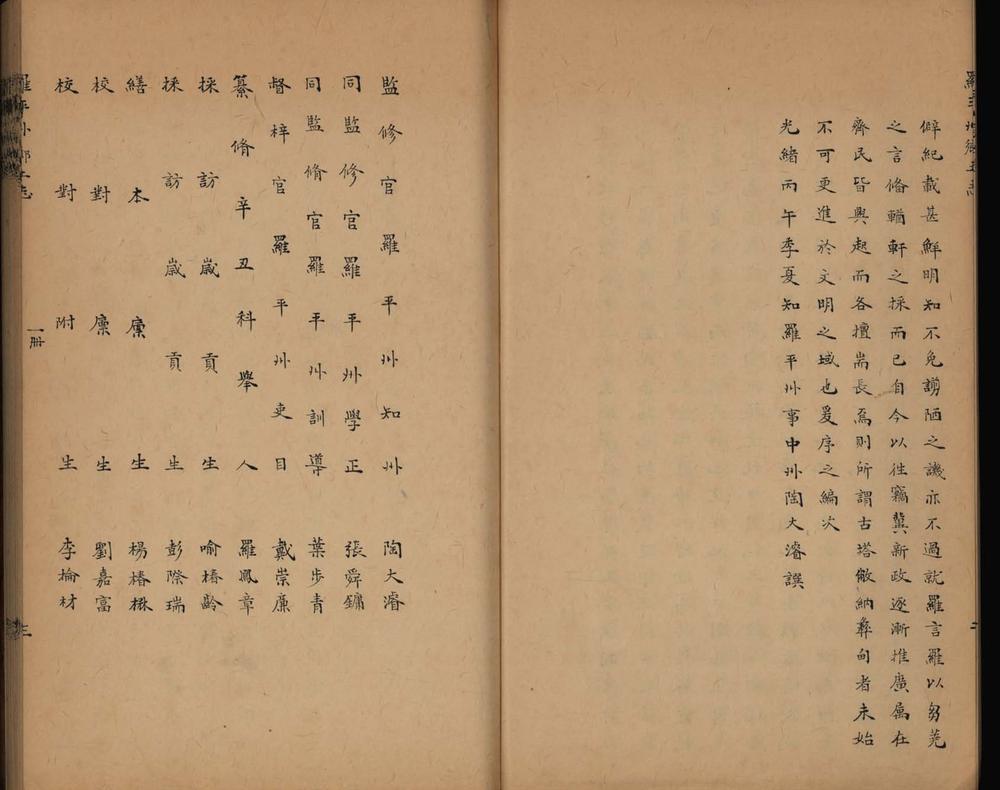 僻紀載甚鮮明知不免謭陋之譏亦不過就羅言羅以芻蕘
之言備輶軒之採而已自今以往竊冀新政逐漸推廣屬在
齊民皆興起而各擅耑長焉則所謂古塔徼納彝甸者未始
不可更進於文明之域也爰序之編次
光緒丙午季夏知羅平州事中州陶大濬譔
監修官羅平州知州 陶大濬
同監修官羅平州學正 張舜鏞
同監脩官羅平州訓導 葉步青
督梓官羅平州吏目 戴崇廉
纂脩辛丑科舉人 羅鳳章
採訪歲貢生 喻椿齡
採訪歲貢生 彭際瑞
繕本廩生 楊椿楙
校對廩生 劉嘉富
校對附生 李掄材
羅平州鄉土志
一册